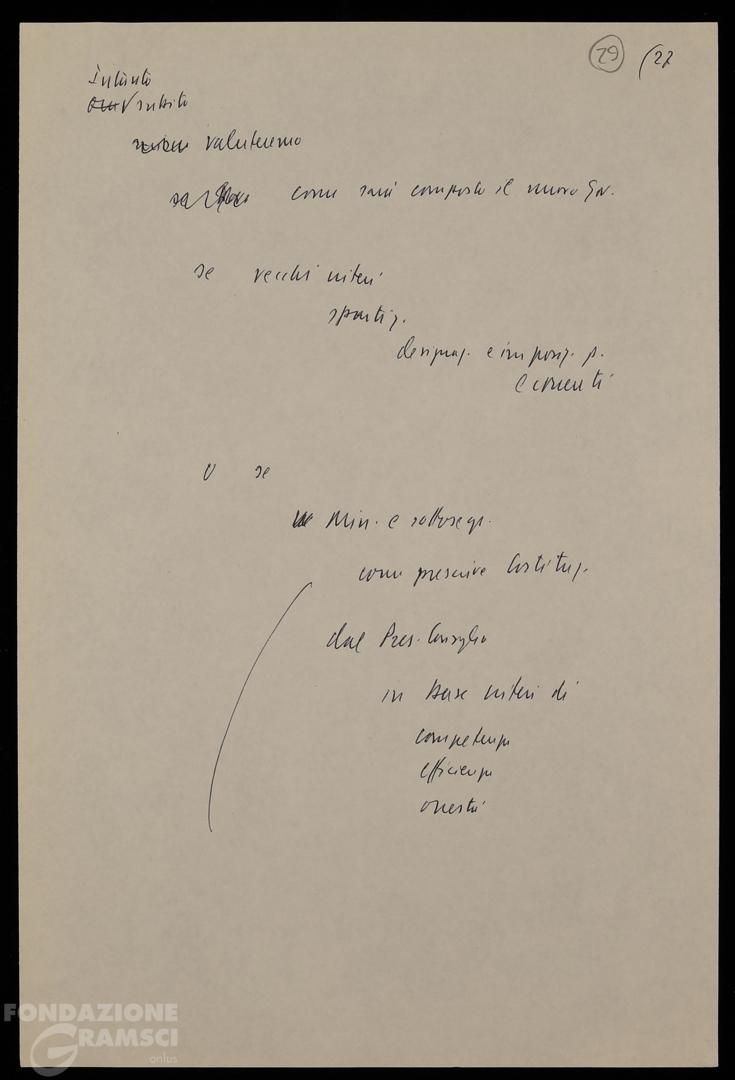 29 (27
Intanto
subito
valuteremo
come sarà composto il nuovo Gov.
se vecchi criteri
spartiz.
designaz. e imposiz. p.
e correnti
o se
Min. e sottosegr.
come prescrive Costituz.
dal Pres. Consiglio
in base criteri di
competenza
efficienza
onestà
FONDAZIONE
GRAMSCI
onlus